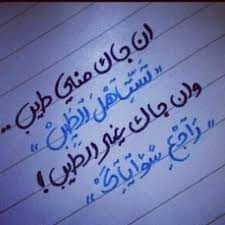 ان جاك مني طيب ..
"تستاهل الطيب"
وان جاك غير الطيب !
"راجع سواياك"